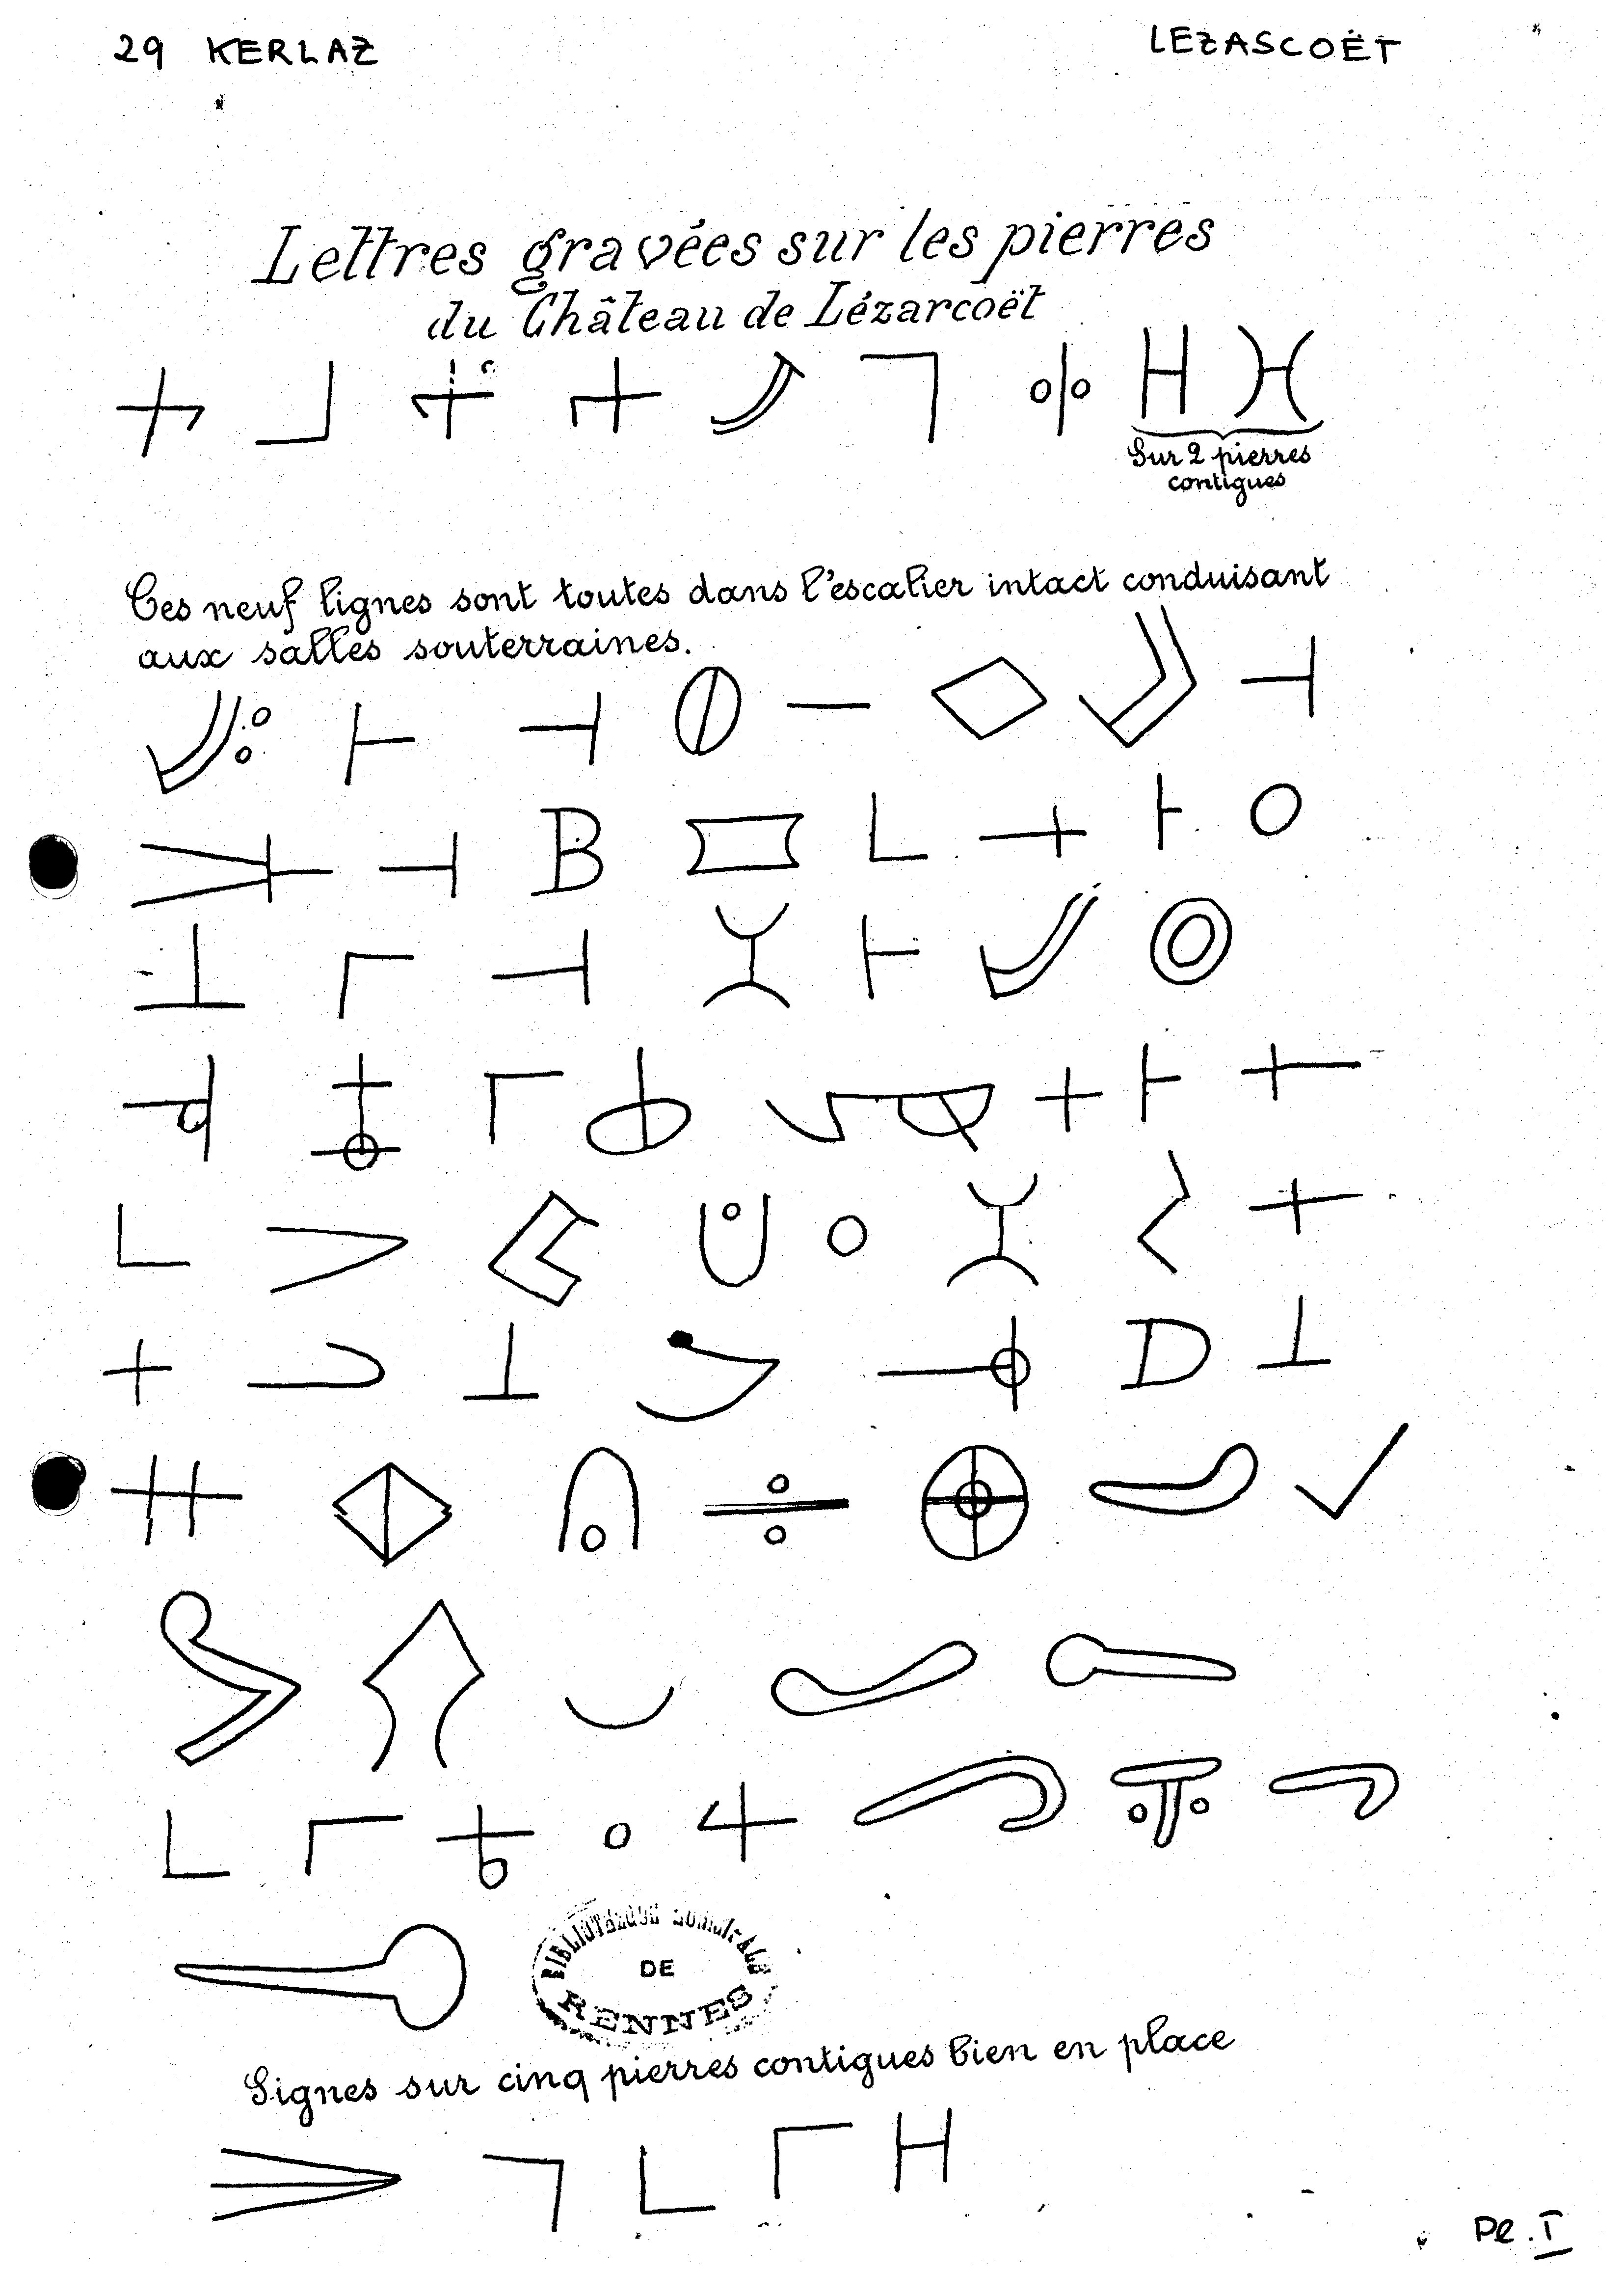 29 KERLAZ
LEZASCOËT
Lettres gravées sur les pierres
du Château de Lézarcoët
H
Sur 2 pierres
contigues
Ces neuf lignes sont toutes dans l'escalier intact conduisant
aux salles souterraines.
B L O
L
D
L
BIBLIOTHEQUE MUNICIPALE
DE
RENNES
Signes sur cinq pierres contigues bien en place
L H
Pl. I